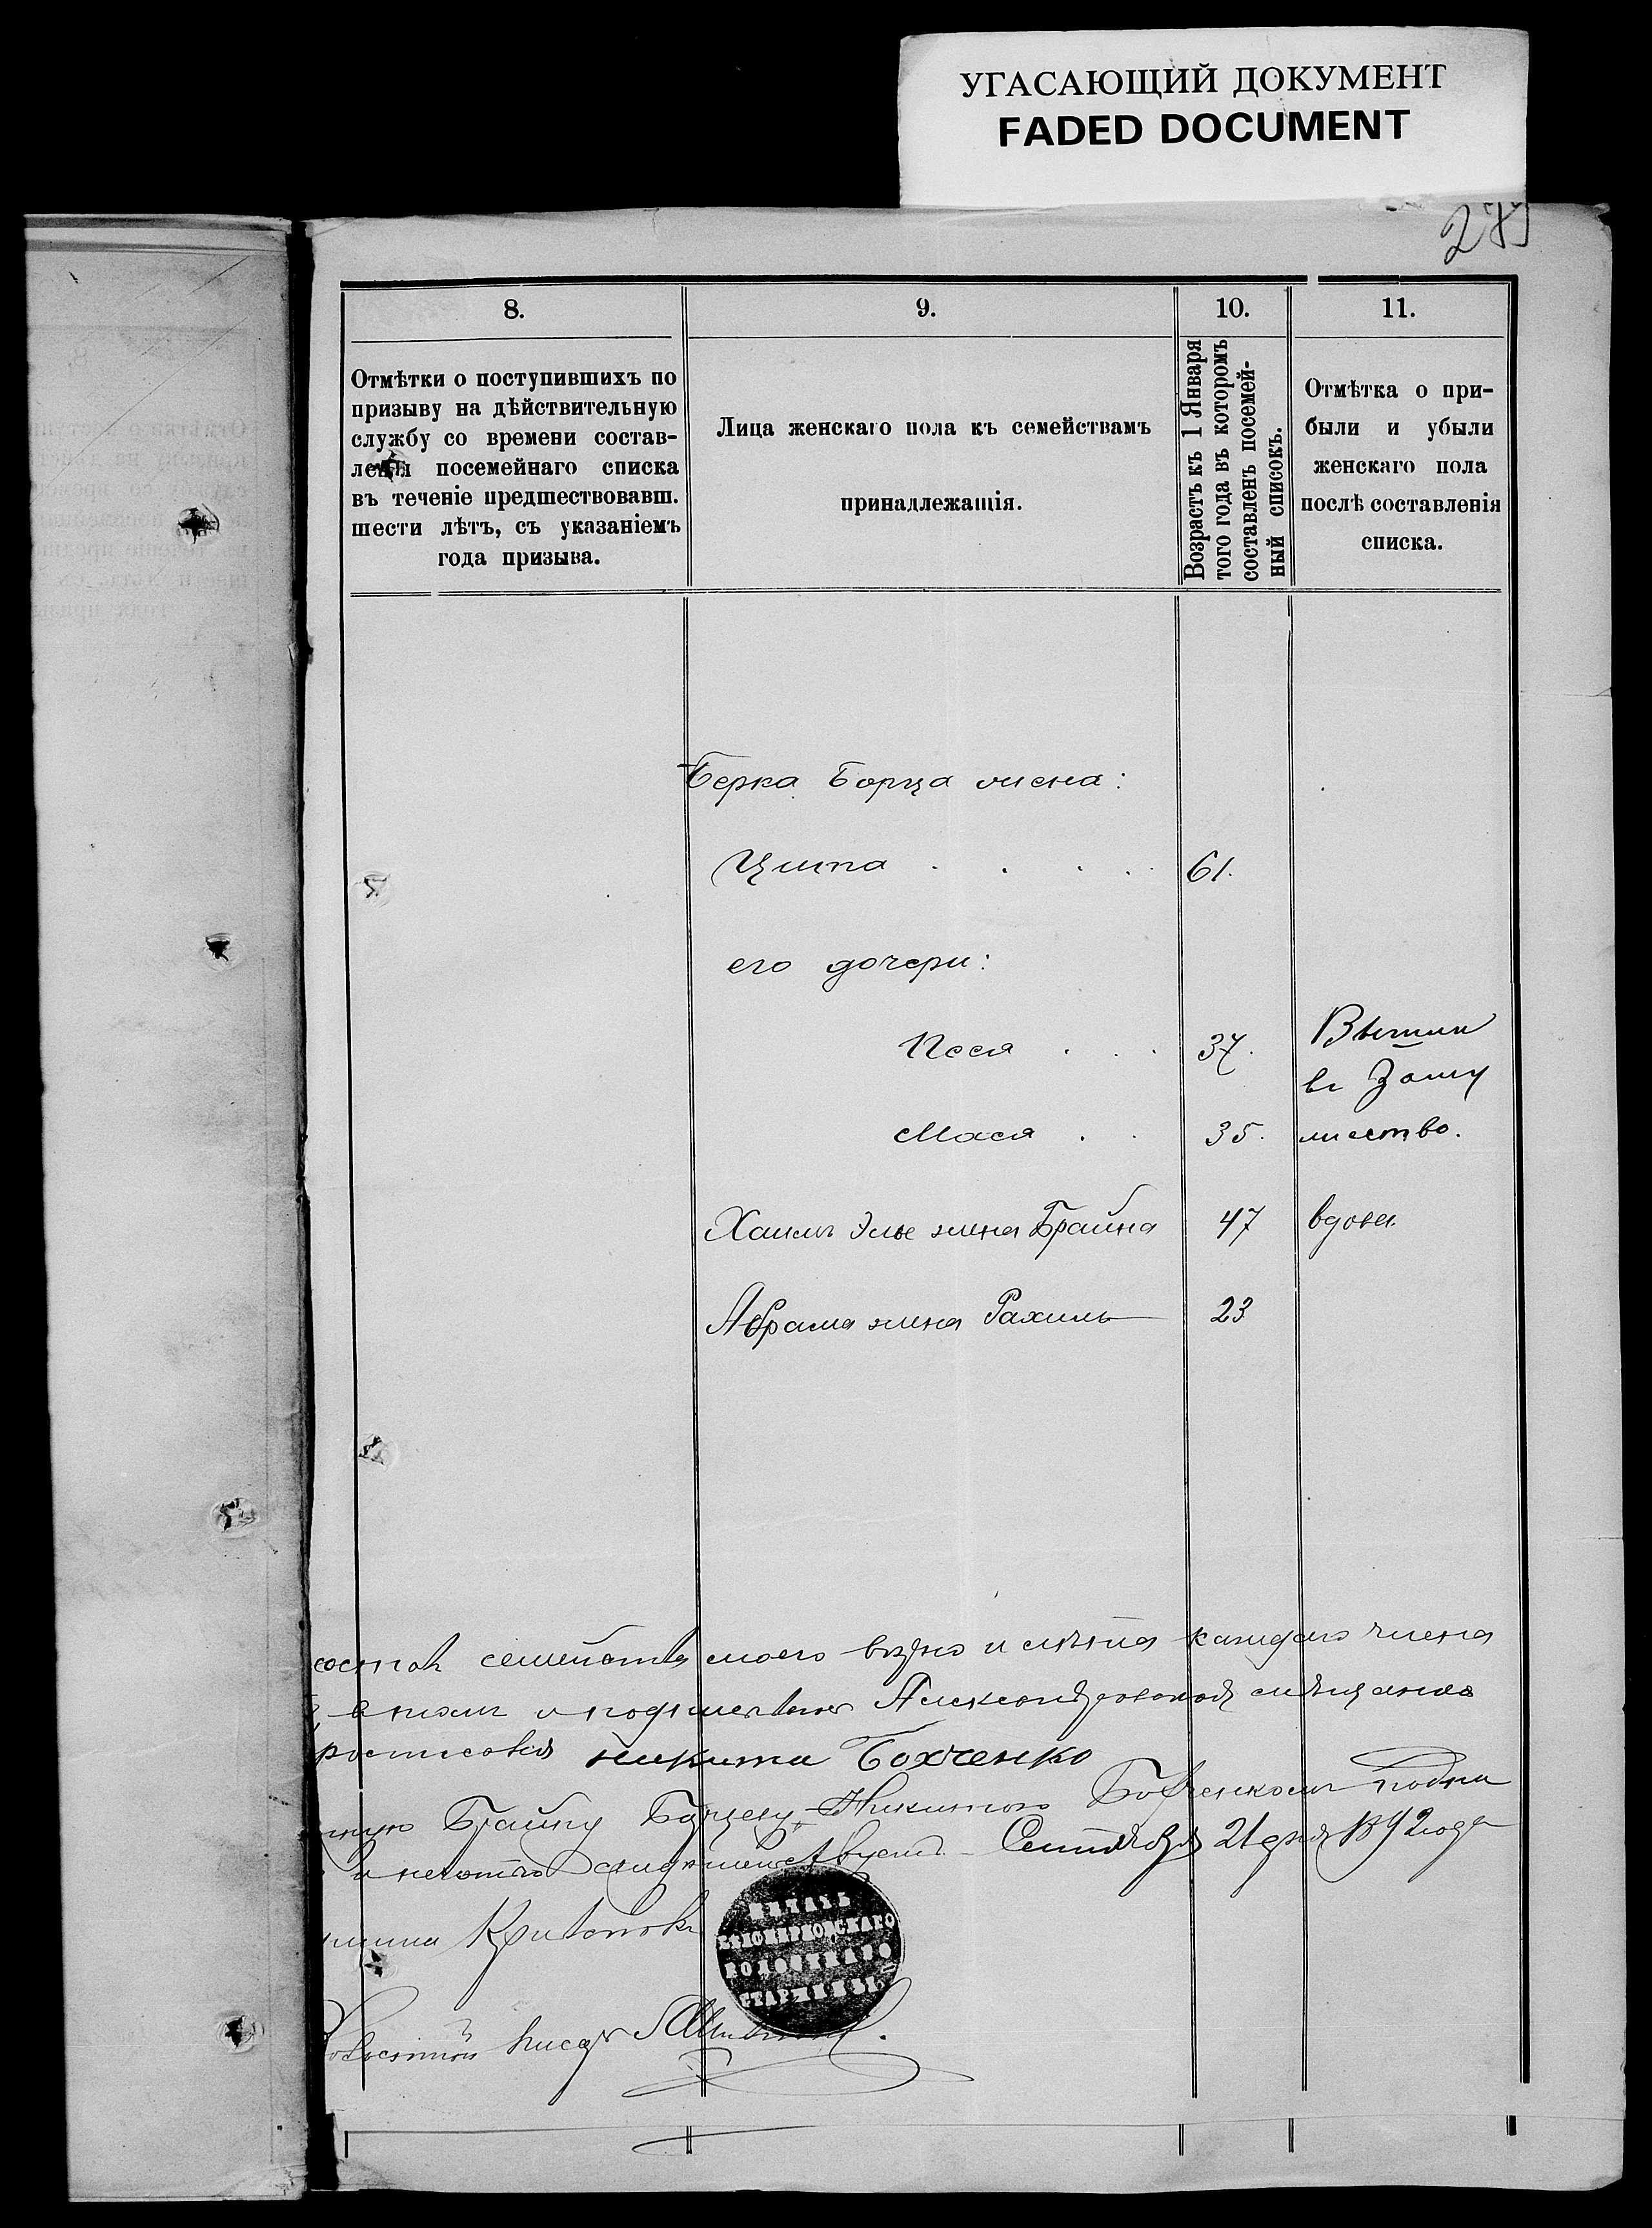 УГАСАЮЩИЙ ДОКУМЕНТ
FADED DOCUMENT
8.
9.
10.
11.
Отмѣтки о поступившихъ по
призыву на дѣйствительную
службу со времени состав-
ленія посемейнаго списка
въ теченіе предшествовавш.
шести лѣтъ, съ указаніемъ
года призыва.
Лица женскаго пола къ семействамъ
принадлежащія.
Возрастъ къ 1 Января
того года въ которомъ
составленъ посемей-
ный списокъ.
Отмѣтка о при-
были и убыли
женскаго пола
послѣ составленія
списка.
Берка Борца жена:
Ципа 61.
его дочери:
Песя 37.
Мася 35.
Вышли
въ Заму
жество.
Хаимъ Элье жена Брайна 47 вдова
Абрама жена Рахиль 23
состав семейства моего вѣрно и лѣта каждого члена
Александровской мѣщанинъ
росписался Никита Бохченко
Брайну Никитою Бохченкомъ подпи
свидѣтельствуетъ Сентября 21 дня 1892 года
Кривоновъ
ПЕЧАТЬ
ВОЛОСТНАГО
СТАРШИНЫ
Волостной писарь